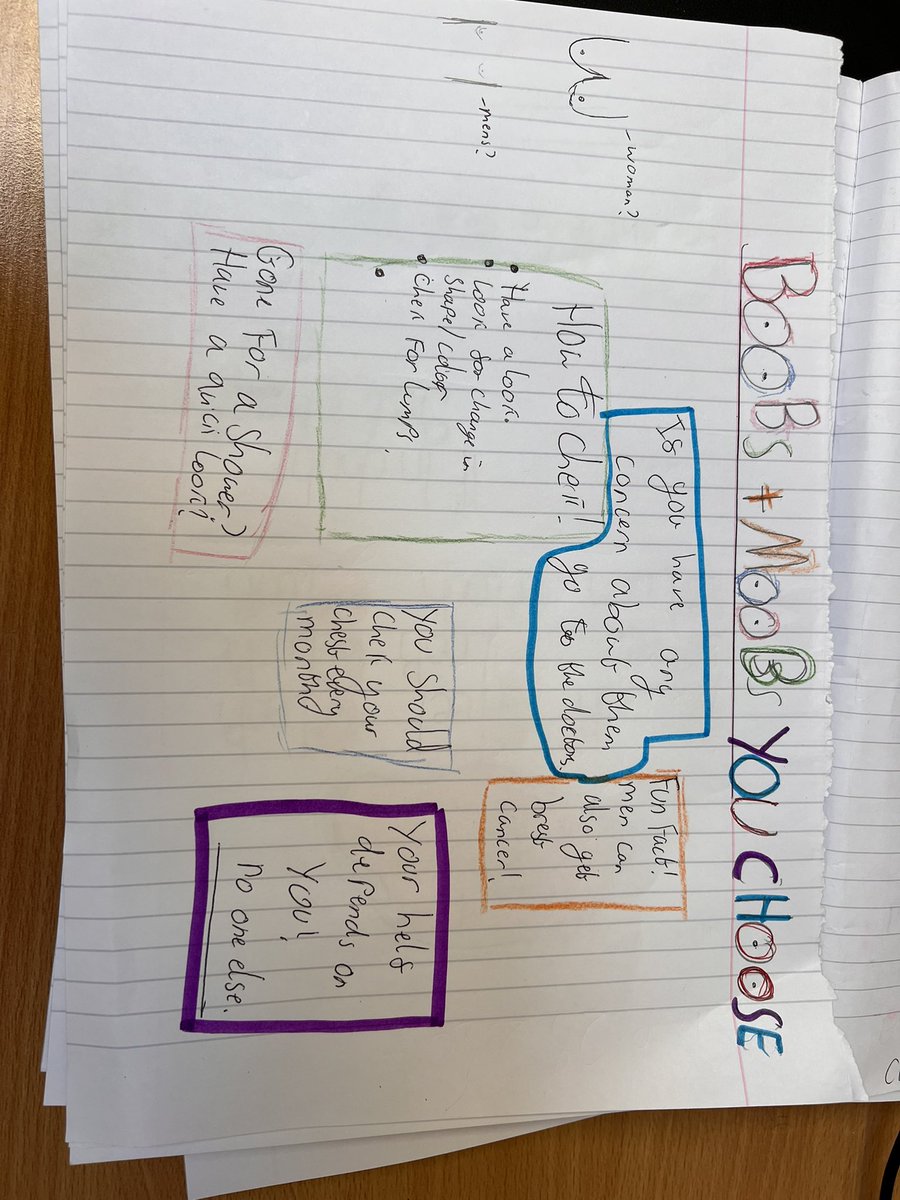 BOOBS + MOOBS YOU CHOOSE
- woman?
- mens?
Is you have any
concern about them
go to the doctors.
How to chek!
Have a look.
look for change in
shape/color
chek For lumps.
Gone For a Shower?
Have a quick look?
You Should
chek your
chest every
month
Fun Fact!
men can
also get
brest
cancer!
Your helf
depends on
YOU!
no one else.